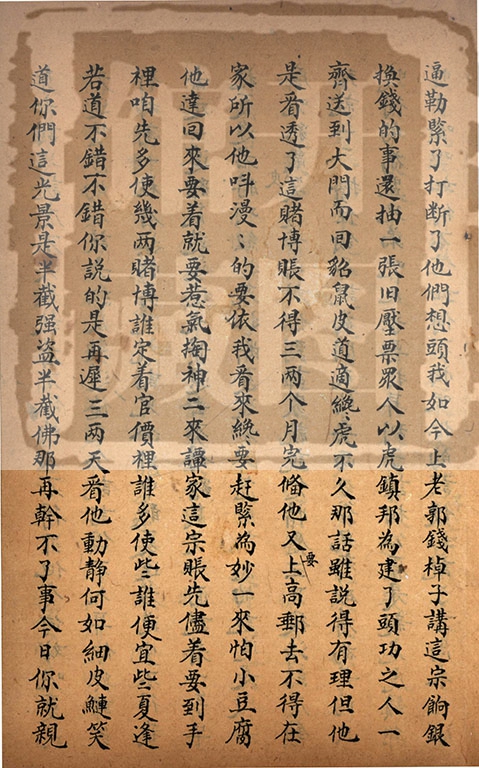 逼勒緊了打断了他們想頭我如今上老郭錢棹子講這宗餉銀
換錢的事還抽一張旧壓票眾人以虎鎮邦為建了頭功之人一
齊送到大門而回貂鼠皮道適纔虎不久那話雖説得有理但他
是看透了這賭博賬不得三兩个月完俻他又要上高郵去不得在
家所以他呌漫〻的要依我看來緫要赶緊為妙一來怕小豆腐
他達回來要着就要惹氣掏神二來譚家這宗賬先儘着要到手
裡咱先多使幾兩賭博誰定着官價裡誰多使些誰便宜些夏逢
若道不錯不錯你説的是再遲三兩天看他動静何如細皮鰱笑
道你們這光景是半截强盗半截佛那再幹不了事今日你就親